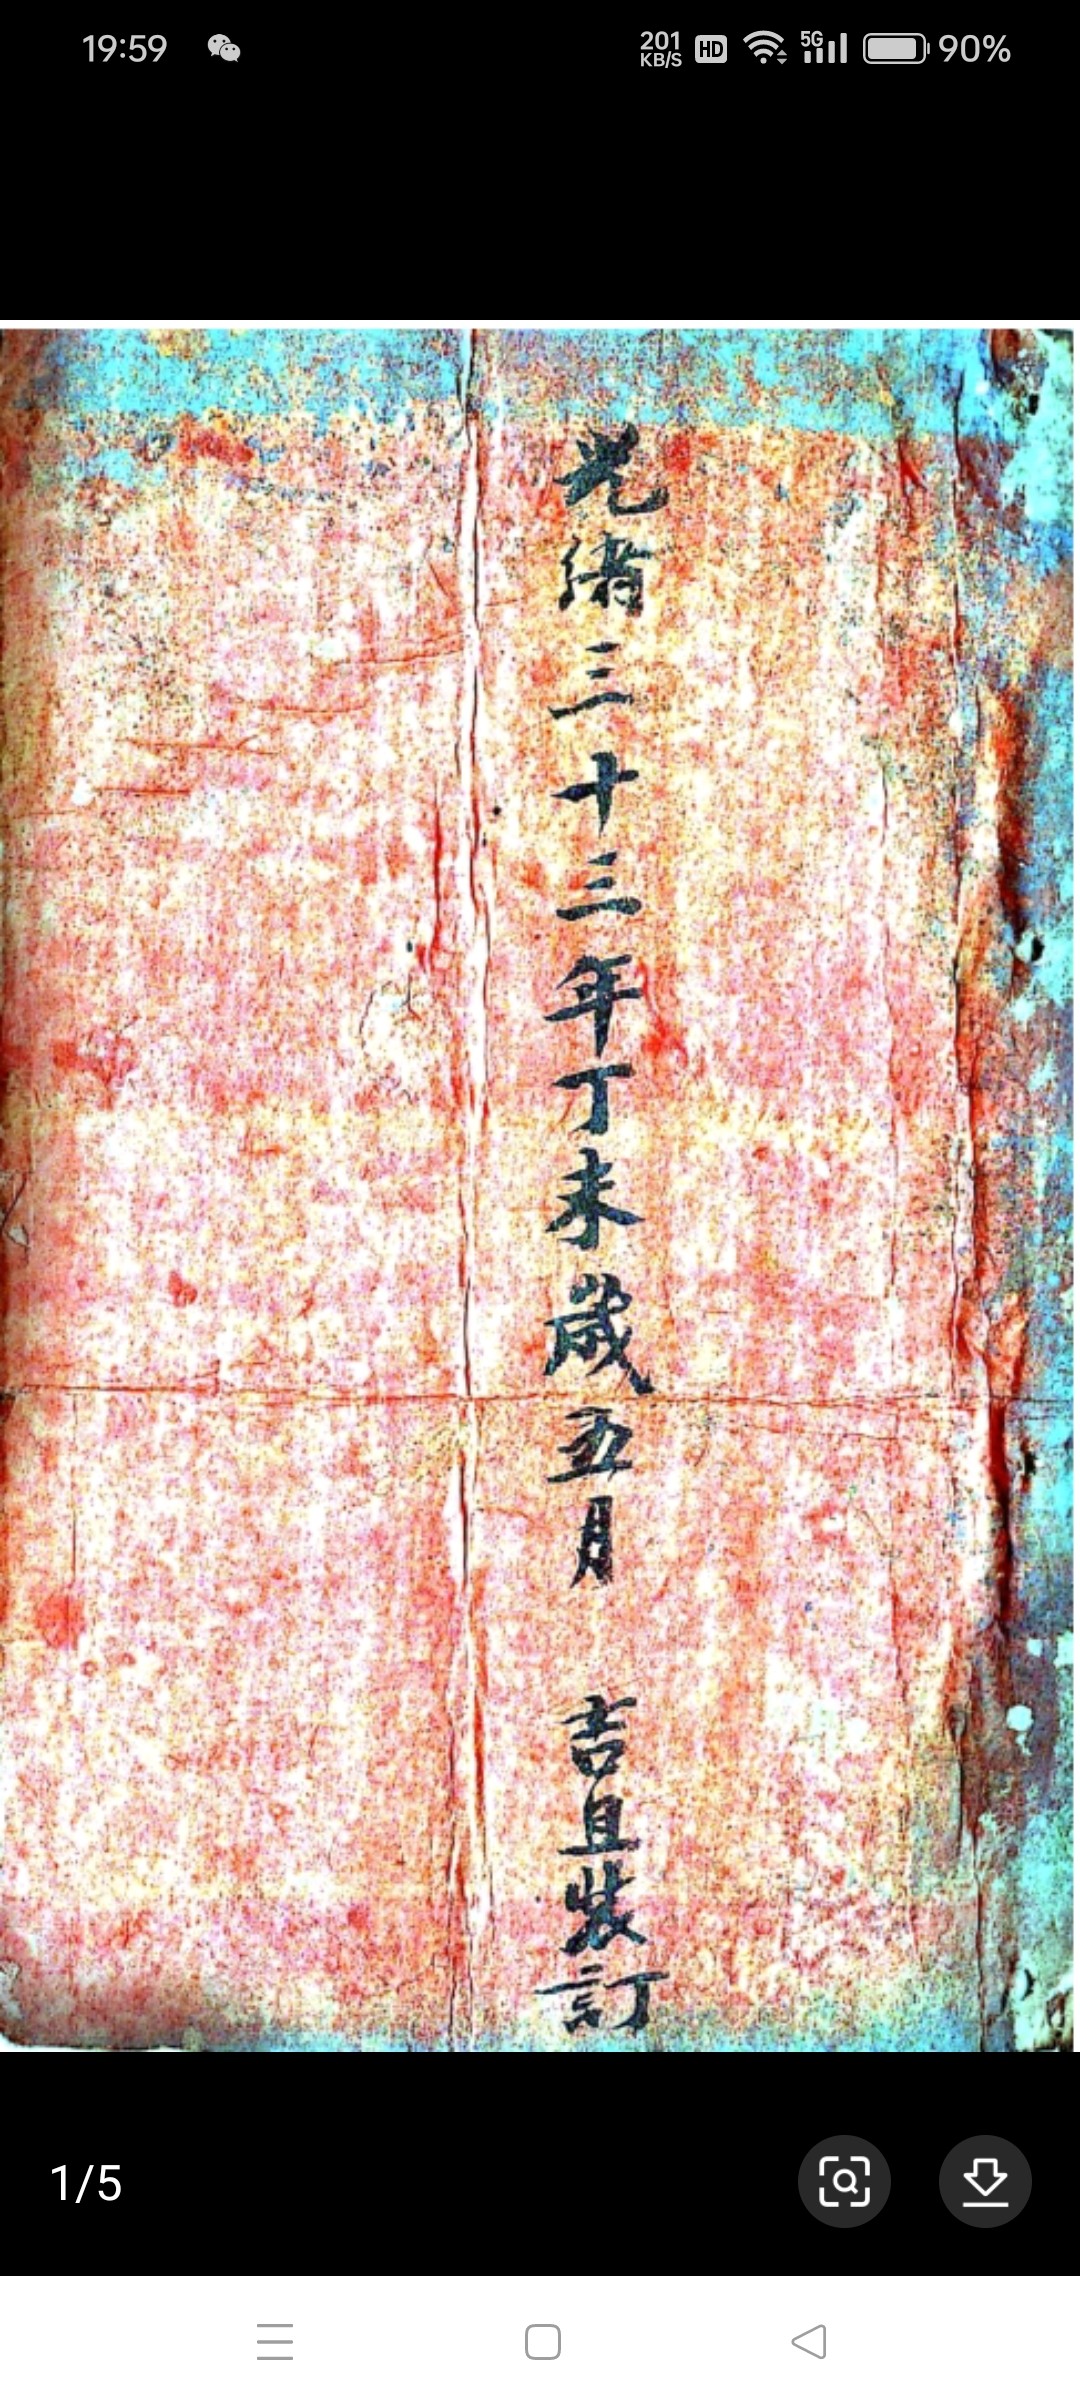 19:59
201 KB/S HD 5G 90%
光緒三十三年丁未歲五月 吉旦裝訂
1/5